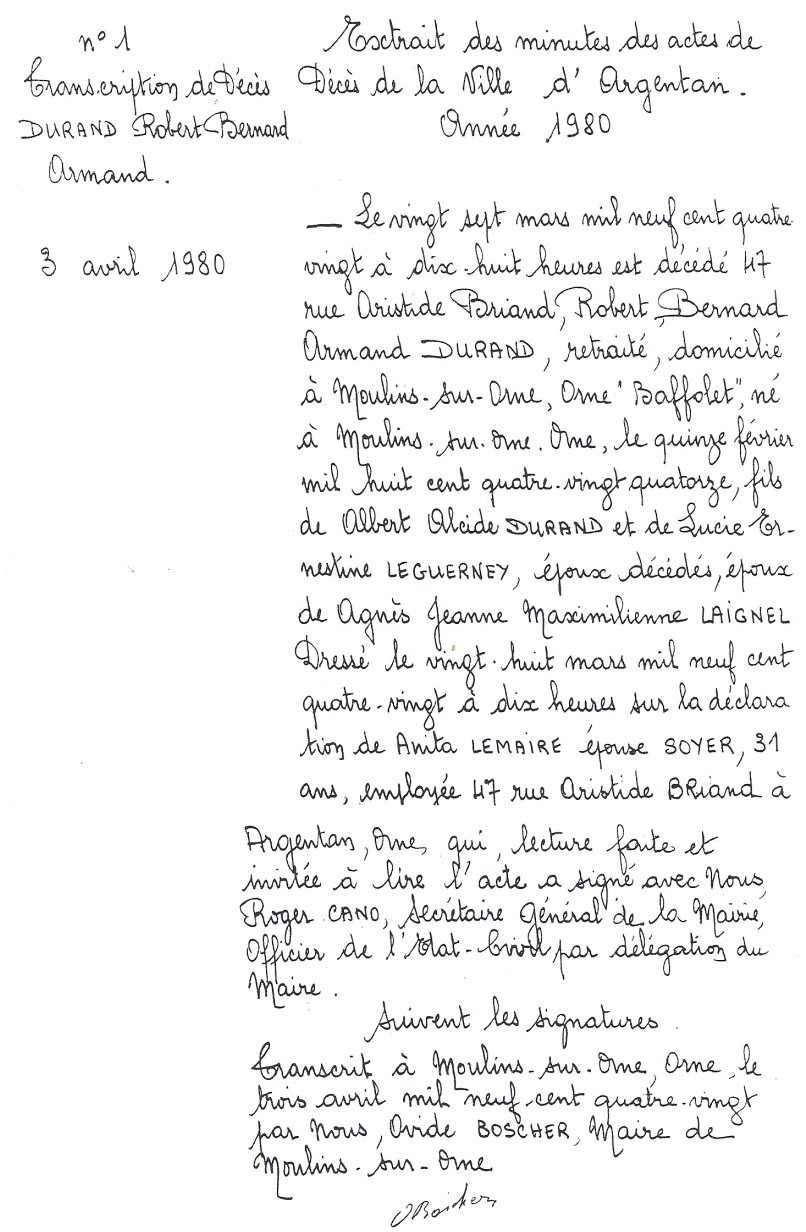 n° 1
Transcription de Décès
DURAND Robert Bernard
Armand.
3 avril 1980
Extrait des minutes des actes de
Décès de la Ville d'Argentan.
Année 1980
— Le vingt sept mars mil neuf cent quatre
vingt à dix-huit heures est décédé 47
rue Aristide Briand, Robert, Bernard
Armand DURAND, retraité, domicilié
à Moulins-sur-Orne, Orne "Baffolet", né
à Moulins-sur-Orne. Orne, le quinze février
mil huit cent quatre-vingt quatorze, fils
de Albert Alcide DURAND et de Lucie Er-
nestine LEGUERNEY, époux décédés, époux
de Agnès Jeanne Maximilienne LAIGNEL
Dressé le vingt-huit mars mil neuf cent
quatre-vingt à dix heures sur la déclara
tion de Anita LEMAIRE épouse SOYER, 31
ans, employée 47 rue Aristide BRIAND à
Argentan, Orne, qui, lecture faite et
invitée à lire l'acte a signé avec Nous,
Roger CANO, Secrétaire Général de la Mairie,
Officier de l'Etat-Civil par délégation du
Maire.
Suivent les signatures.
Transcrit à Moulins-sur-Orne, Orne, le
trois avril mil neuf-cent quatre-vingt
par Nous, Ovide BOSCHER, Maire de
Moulins-sur-Orne
OBoscher